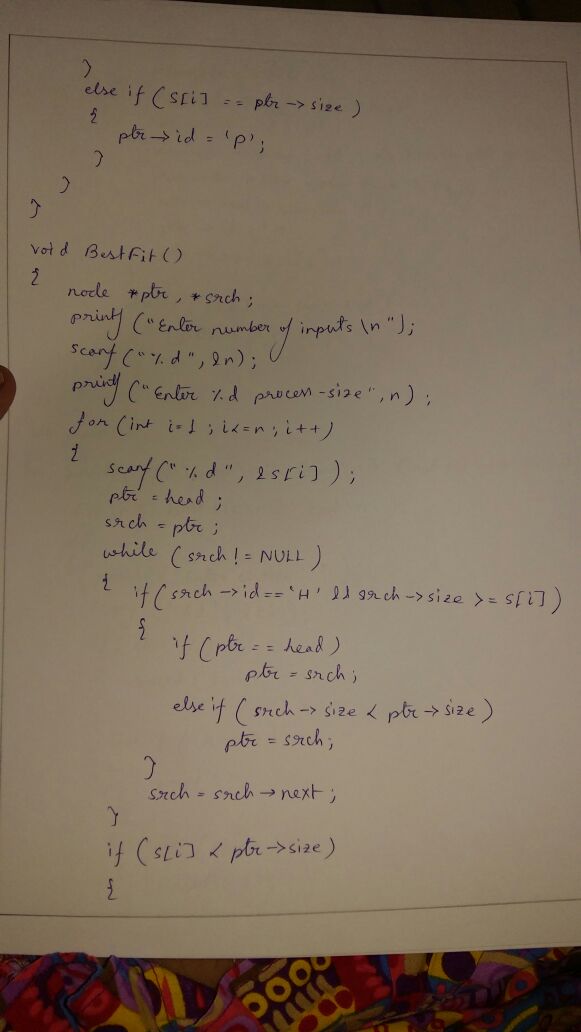 }
else if ( S[i] == ptr -> size )
{
ptr -> id = 'P';
}
}
}
void BestFit ()
{
node *ptr, *srch;
printf ("Enter number of inputs \n");
scanf ("%d", &n);
printf ("Enter %d process-size", n);
for (int i=1; i<=n; i++)
{
scanf ("%d", &s[i]);
ptr = head;
srch = ptr;
while (srch != NULL)
{
if ( srch -> id == 'H' && srch -> size >= s[i] )
{
if (ptr == head)
ptr = srch;
else if ( srch -> size < ptr -> size )
ptr = srch;
}
srch = srch -> next;
}
if ( s[i] < ptr -> size)
{